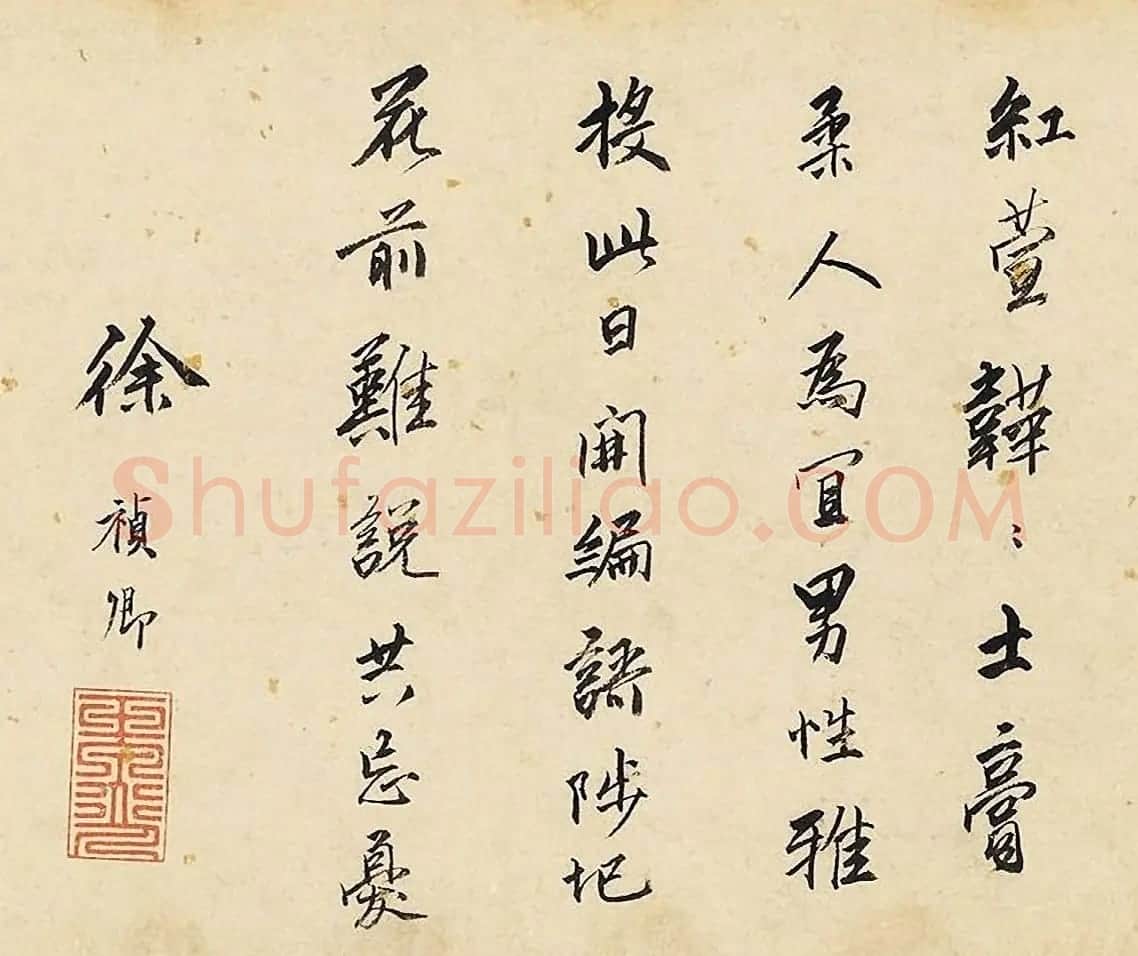 紅萱韡〻土膏
柔人爲宜男性雅
投此日開編語陟圯
花前難說共忘憂
徐禎卿
Shufaziliao.COM